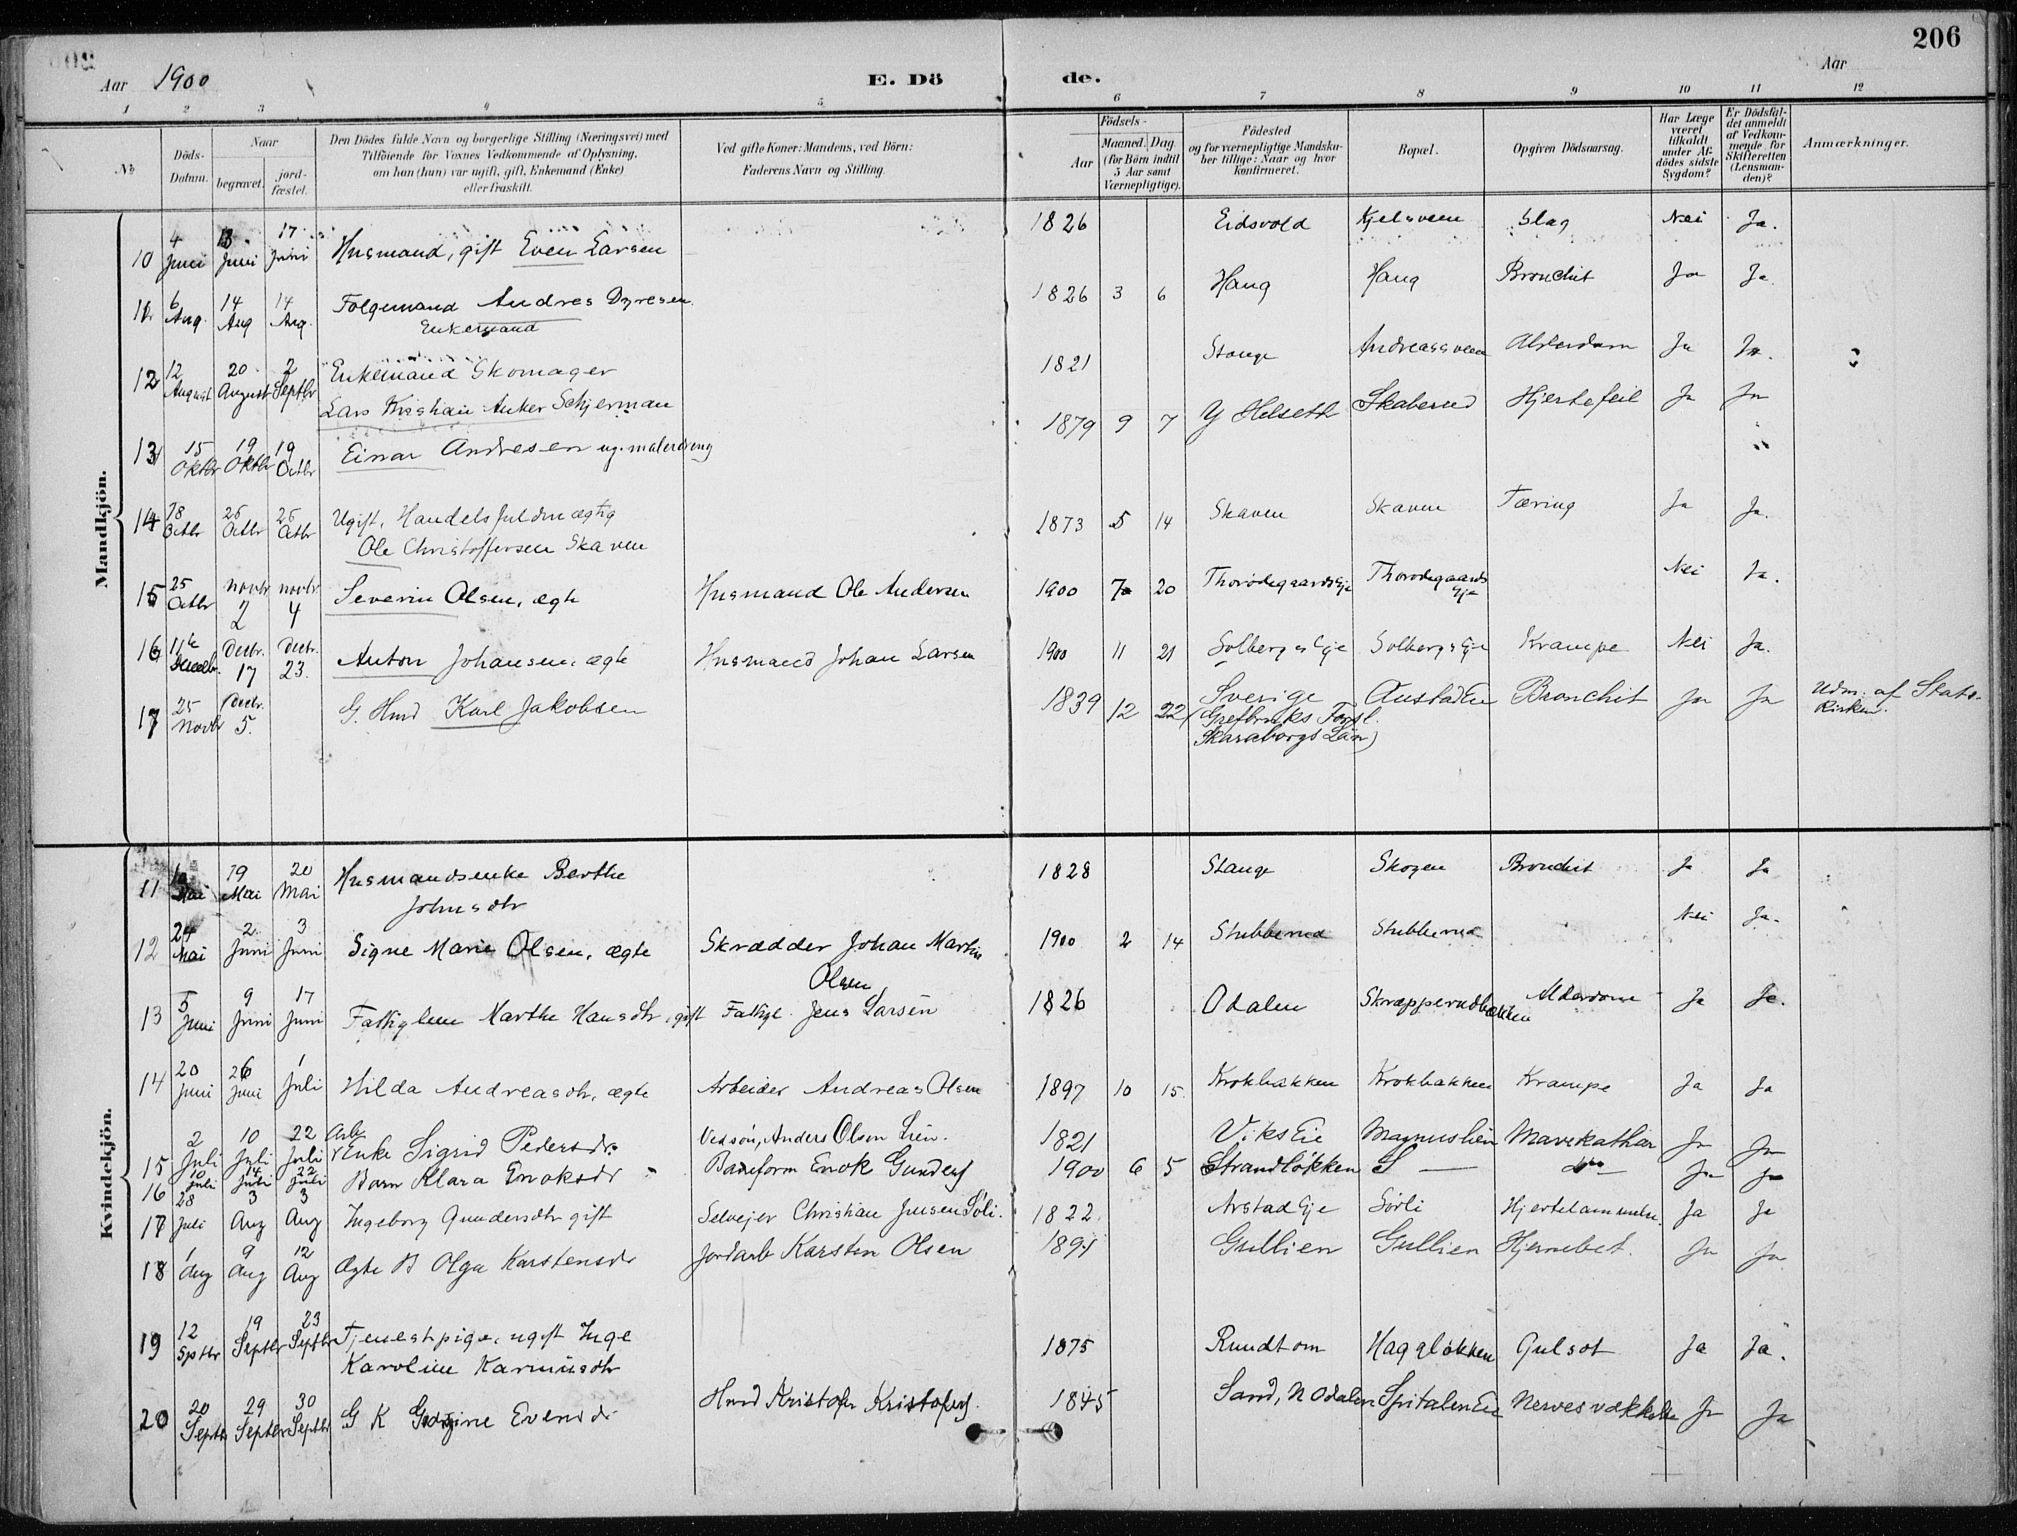 206
Aar 1900 E. Dö de. Aar
1 2 3 4 5 6 7 8 9 10 11 12
No
Döds-Datum.
Naar
begravet.
jord-fæstet.
Den Dödes fulde Navn og borgerlige Stilling (Næringsvei) med
Tilföiende for Voxnes Vedkommende af Oplysning,
om han (hun) var ugift, gift, Enkemand (Enke)
eller fraskilt.
Ved gifte Koner: Mandens, ved Börn:
Faderens Navn og Stilling.
Födsels-
Aar
Maaned. Dag.
(for Börn indtil
5 Aar samt
Værnepligtige).
Födested
og for værnepligtige Mandska-
ber tillige: Naar og hvor
konfirmeret.
Bopæl.
Opgiven Dödsaarsag.
Har Læge
været
tilkaldt
under Af-
dödes sidste
Sygdom?
Er Dödsfal-
det anmeldt
af Vedkom-
mende for
Skifteretten
(Lensman-
den)?
Anmærkninger.
Mandkjön.
10 4 Juni 13 Juni 17 Juni Husmand, gift Even Larsen 1826 Eidsvold Kjelsveen Slag Nei Ja.
11 6 Aug. 14 Aug 14 Aug. Folgemand Andres Dyresen. 1826 3 6 Haug Haug Bronchit Ja Ja.
Enkemand
12 12 August 20 August 2 Septbr Enkemand Skomager 1821 Stange Andreassveen Alderdom Ja Ja.
Lars Kristian Anker Schjerman
13 15 Oktbr 19 Oktbr 19 Octbr Einar Andresen ug. malerdreng 1879 9 7 Y Helseth Skaberud Hjertefeil Ja Ja
14 18 Octbr 26 Octbr 26 Octbr Ugift, Handelsfuldmægtig 1873 5 14 Skaven Skaven Tæring Ja Ja.
Ole Christoffersen Skaven
15 25 Octbr novbr 2 novbr. 4 Severin Olsen, ægte Husmand Ole Andersen 1900 7 20 Thorodegaards Eje Thorodegaards Eje Nei Ja.
16 11 Decbr. Decbr. 17 Decbr. 23. Anton Johansen, ægte Husmand Johan Larsen 1900 11 21 Solbergs Eje Solbergs Eje Krampe Nei Ja.
17 25 Novbr Decbr. 5. G. Hmd Karl Jakobsen 1839 12 22 Sverige Austad Eie Bronchit Ja Ja Udm. af Stats-
Kirken.
Skaraborgs Län)
Kvindekjön.
11 Mai 19 Mai 20 Mai Husmandsenke Berthe 1828 Stange Skogen Bronchit Ja Ja
Johnsdtr
12 24 Mai 2 Juni 3 Juni Signe Marie Olsen, ægte Skrædder Johan Martin 1900 2 14 Stubberud Stubberud Nei Ja.
Olsen
13 5 Juni 9 Juni 17 Juni Fattiglem Marthe Hansdtr, gift Fattigl. Jens Larsen 1826 Odalen Skræpperudbakken Alderdom Ja Ja.
14 20 Juni 26 Juni 1 Juli Hilda Andreasdtr, ægte Arbeider Andreas Olsen 1897 10 15. Krokbakken Krokbakken Krampe Ja Ja
15 2 Juli 10 Juli 22 Juli Arb Enke Sigrid Pedersdr. Anders Olsen Lien. 1821 Viks Eie Magnuslien Mavekathar Ja Ja
16 10 Juli 14 Juli 22 Juli Barn Klara Enoksdr Baneform Enok Gunders 1900 6 5 Strandløkken S — do — Ja Ja
17 28 Juli 3 Aug 3 Aug Ingeborg Gundersdtr gift Selvejer Christian Jensen Søli. 1822 Arstad Eje Sørli Hjertelammelse. Ja Ja
18 1 Aug 9 Aug 12 Aug Ægte B Olga Karstensdr Jordarb Karsten Olsen 1891 Gullien Gullien Hjernebet. Ja Ja.
19 12 Sptbr 19 Septbr 23 Septbr Tjenestpige, ugift Inge 1875 Rundtom Hagaløkken Gulsot Ja Ja.
Karoline Karinusdtr
20 20 Septbr 29 Septbr 30 Septbr G K Georgine Evensdr Hmd Kristofer Kristofers. 1845 Sand, N Odalen Spitalen Eie Nervesvækkelse Ja Ja